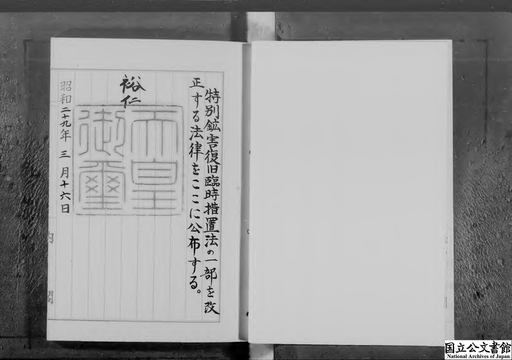 特別鉱害復旧臨時措置法の一部を改
正する法律をここに公布する。
裕仁
天皇
御璽
昭和二十九年三月十六日
内閣
国立公文書館
National Archives of Japan